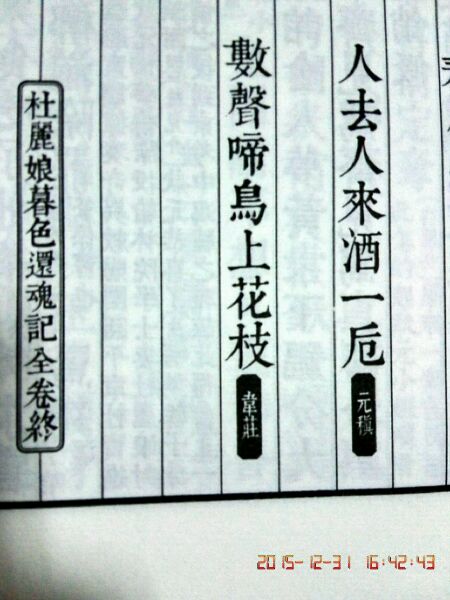 人去人來酒一卮
元稹
數聲啼鳥上花枝
韋莊
杜麗娘暮色還魂記全卷終
2015-12-31 16:42:43